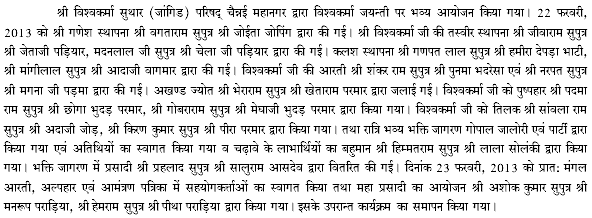 श्री विश्वकर्मा सुथार (जांगिड) परिषद् चैन्नई महानगर द्वारा विश्वकर्मा जयन्ती पर भव्य आयोजन किया गया। 22 फरवरी,
2013 को श्री गणेश स्थापना श्री वगताराम सुपुत्र श्री जोईता जोपिंग द्वारा की गई। श्री विश्वकर्मा जी की तस्वीर स्थापना श्री जीवाराम सुपुत्र
श्री जेताजी पड़ियार, मदनलाल जी सुपुत्र श्री चेला जी पड़ियार द्वारा की गई। कलश स्थापना श्री गणपत लाल सुपुत्र श्री हमीरा देपड़ा भाटी,
श्री मांगीलाल सुपुत्र श्री आदाजी वागमार द्वारा की गई। विश्वकर्मा जी की आरती श्री शंकर राम सुपुत्र श्री पुनमा भदरेसा एवं श्री नरपत सुपुत्र
श्री मगना जी पड़मा द्वारा की गई। अखण्ड ज्योत श्री भेराराम सुपुत्र श्री खेताराम परमार द्वारा जलाई गई। विश्वकर्मा जी को पुष्पहार श्री पदमा
राम सुपुत्र श्री छोगा भुदड़ परमार, श्री गोबराराम सुपुत्र श्री मेघाजी भुदड़ परमार द्वारा किया गया। विश्वकर्मा जी को तिलक श्री सांवला राम
सुपुत्र श्री अदाजी जोड़, श्री किरण कुमार सुपुत्र श्री पीरा परमार द्वारा किया गया। तथा रात्रि भव्य भक्ति जागरण गोपाल जालोरी एवं पार्टी द्वारा
किया गया एवं अतिथियों का स्वागत किया गया व चढ़ावे के लाभार्थियों का बहुमान श्री हिम्मतराम सुपुत्र श्री लाला सोलंकी द्वारा किया
गया। भक्ति जागरण में प्रसादी श्री प्रहलाद सुपुत्र श्री सालुराम आसदेव द्वारा वितरित की गई। दिनांक 23 फरवरी, 2013 को प्रात: मंगल
आरती, अल्पहार एवं आमंत्रण पत्रिका में सहयोगकर्ताओं का स्वागत किया तथा महा प्रसादी का आयोजन श्री अशोक कुमार सुपुत्र श्री
मनरूप पराड़िया, श्री हेमराम सुपुत्र श्री पीथा पराड़िया द्वारा किया गया। इसके उपरान्त कार्यक्रम का समापन किया गया।